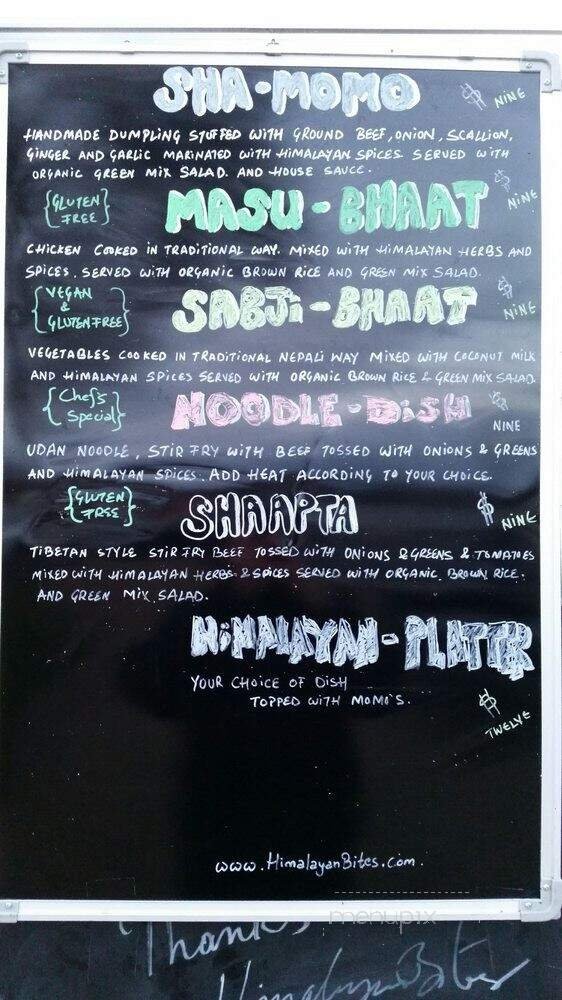 SHA-MOMO $ NINE
HANDMADE DUMPLING STUFFED WITH GROUND BEEF, ONION, SCALLION,
GINGER AND GARLIC MARINATED WITH HIMALAYAN SPICES. SERVED WITH
ORGANIC GREEN MIX SALAD. AND HOUSE SAUCE.
{GLUTEN FREE} MASU-BHAAT $ NINE
CHICKEN COOKED IN TRADITIONAL WAY. MIXED WITH HIMALAYAN HERBS AND
SPICES. SERVED WITH ORGANIC BROWN RICE AND GREEN MIX SALAD.
{VEGAN & GLUTEN FREE} SABJI-BHAAT $ NINE
VEGETABLES COOKED IN TRADITIONAL NEPALI WAY MIXED WITH COCONUT MILK
AND HIMALAYAN SPICES SERVED WITH ORGANIC BROWN RICE & GREEN MIX SALAD.
{Chef's Special} NOODLE-DISH $ NINE
UDAN NOODLE, STIR FRY WITH BEEF TOSSED WITH ONIONS & GREENS
AND HIMALAYAN SPICES. ADD HEAT ACCORDING TO YOUR CHOICE.
{GLUTEN FREE} SHAAPTA $ NINE
TIBETAN STYLE STIR FRY BEEF TOSSED WITH ONIONS & GREENS & TOMATOES
MIXED WITH HIMALAYAN HERBS & SPICES SERVED WITH ORGANIC BROWN RICE.
AND GREEN MIX SALAD.
HIMALAYAN-PLATTER
YOUR CHOICE OF DISH
TOPPED WITH MOMO'S. $ TWELVE
www.HimalayanBites.com.
menupix
Thanks
HimalayanBites